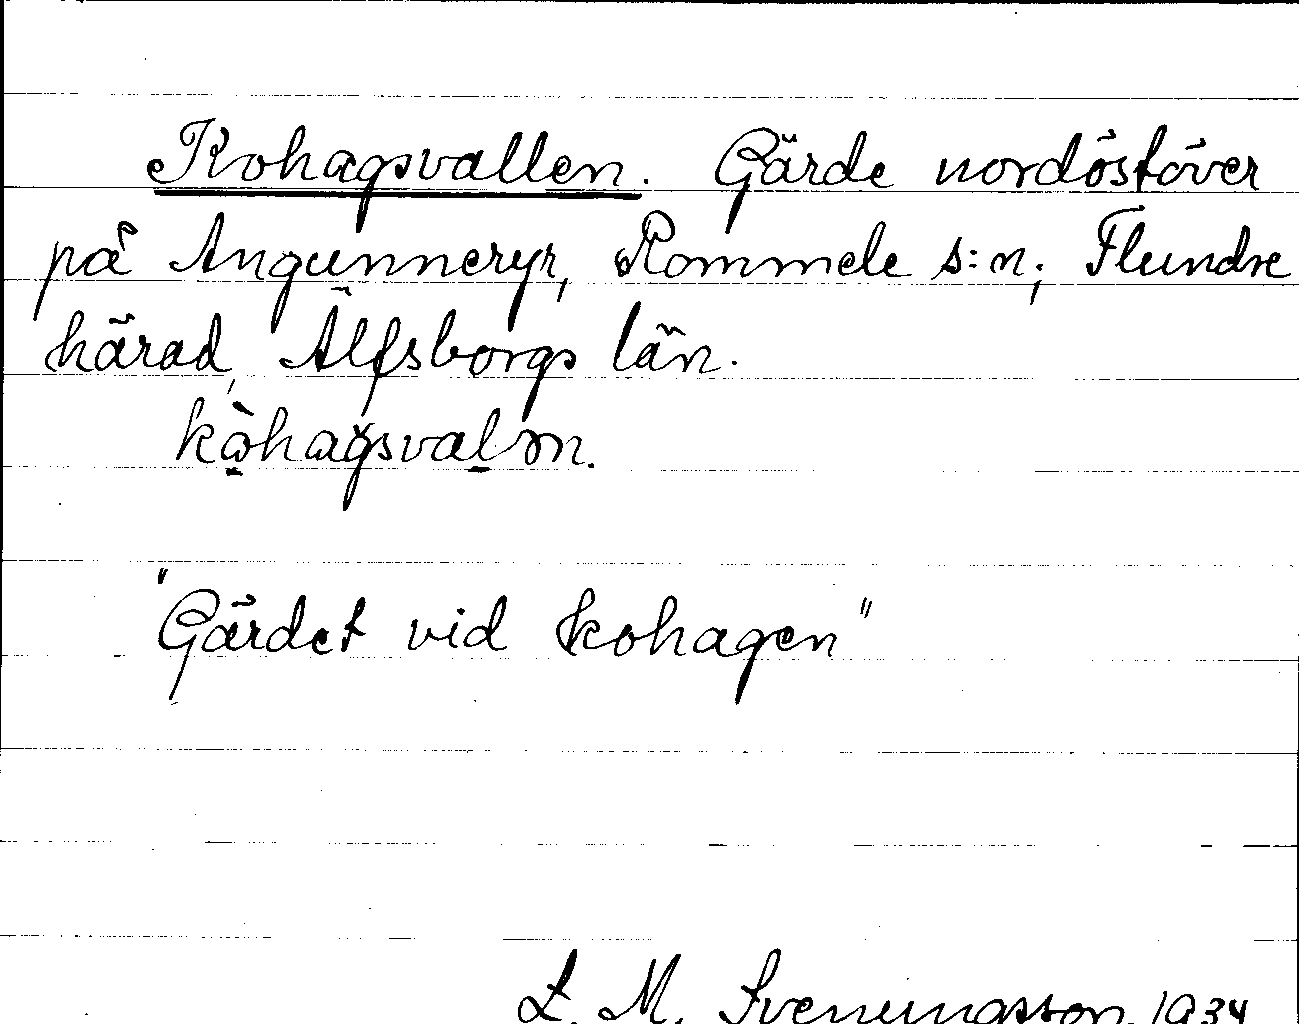 Kohagsvallen. Gärde nordöstöver
på Ingunneryr, Rommele s:n; Flundre
härad, Älfsborgs län.
kòhagsvalən.
"Gärdet vid kohagen"
L. M. Svenungsson 1934